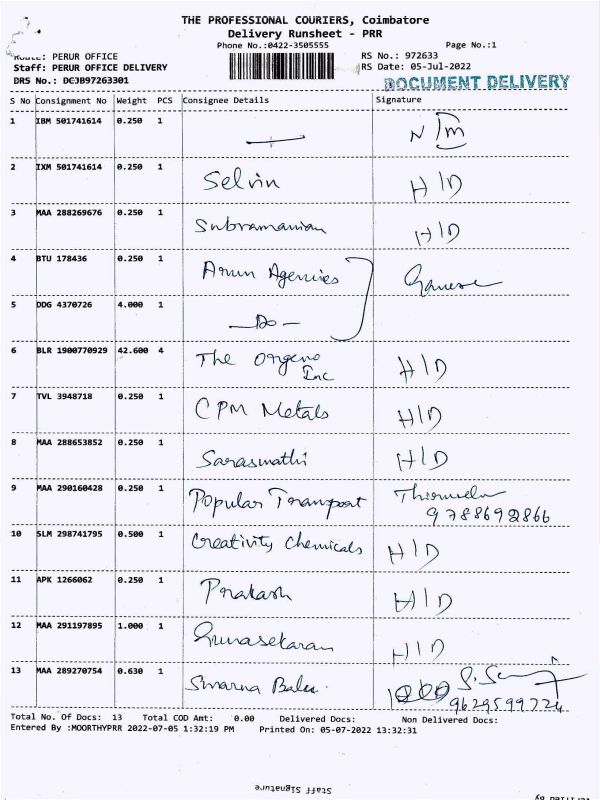 THE PROFESSIONAL COURIERS, Coimbatore
Delivery Runsheet - PRR
Phone No.:0422-3505555 Page No.:1
Route: PERUR OFFICE RS No.: 972633
Staff: PERUR OFFICE DELIVERY RS Date: 05-Jul-2022
DRS No.: DCJB97263301
DOCUMENT DELIVERY
S No Consignment No Weight PCS Consignee Details Signature
1 IBM 501741614 0.250 1 — N Im
2 IXM 501741614 0.250 1 Selvin H/D
3 MAA 288269676 0.250 1 Subramanian H/D
4 BTU 178436 0.250 1 Arun Agencies
5 DDG 4370726 4.000 1 -Do-
6 BLR 1900770929 42.600 4 The Orgeno Inc H/D
7 TVL 3948718 0.250 1 CPM Metals H/D
8 MAA 288653852 0.250 1 Saraswathi H/D
9 MAA 290160428 0.250 1 Popular Transport
9788692866
10 SLM 298741795 0.500 1 Creativity Chemicals H/D
11 APK 1266062 0.250 1 Prakash H/D
12 MAA 291197895 1.000 1 Gunasekaran H/D
13 MAA 289270754 0.630 1 Swarna Bala
9629599724
Total No. Of Docs: 13 Total COD Amt: 0.00 Delivered Docs: Non Delivered Docs:
Entered By :MOORTHYPRR 2022-07-05 1:32:19 PM Printed On: 05-07-2022 13:32:31
Staff Signature